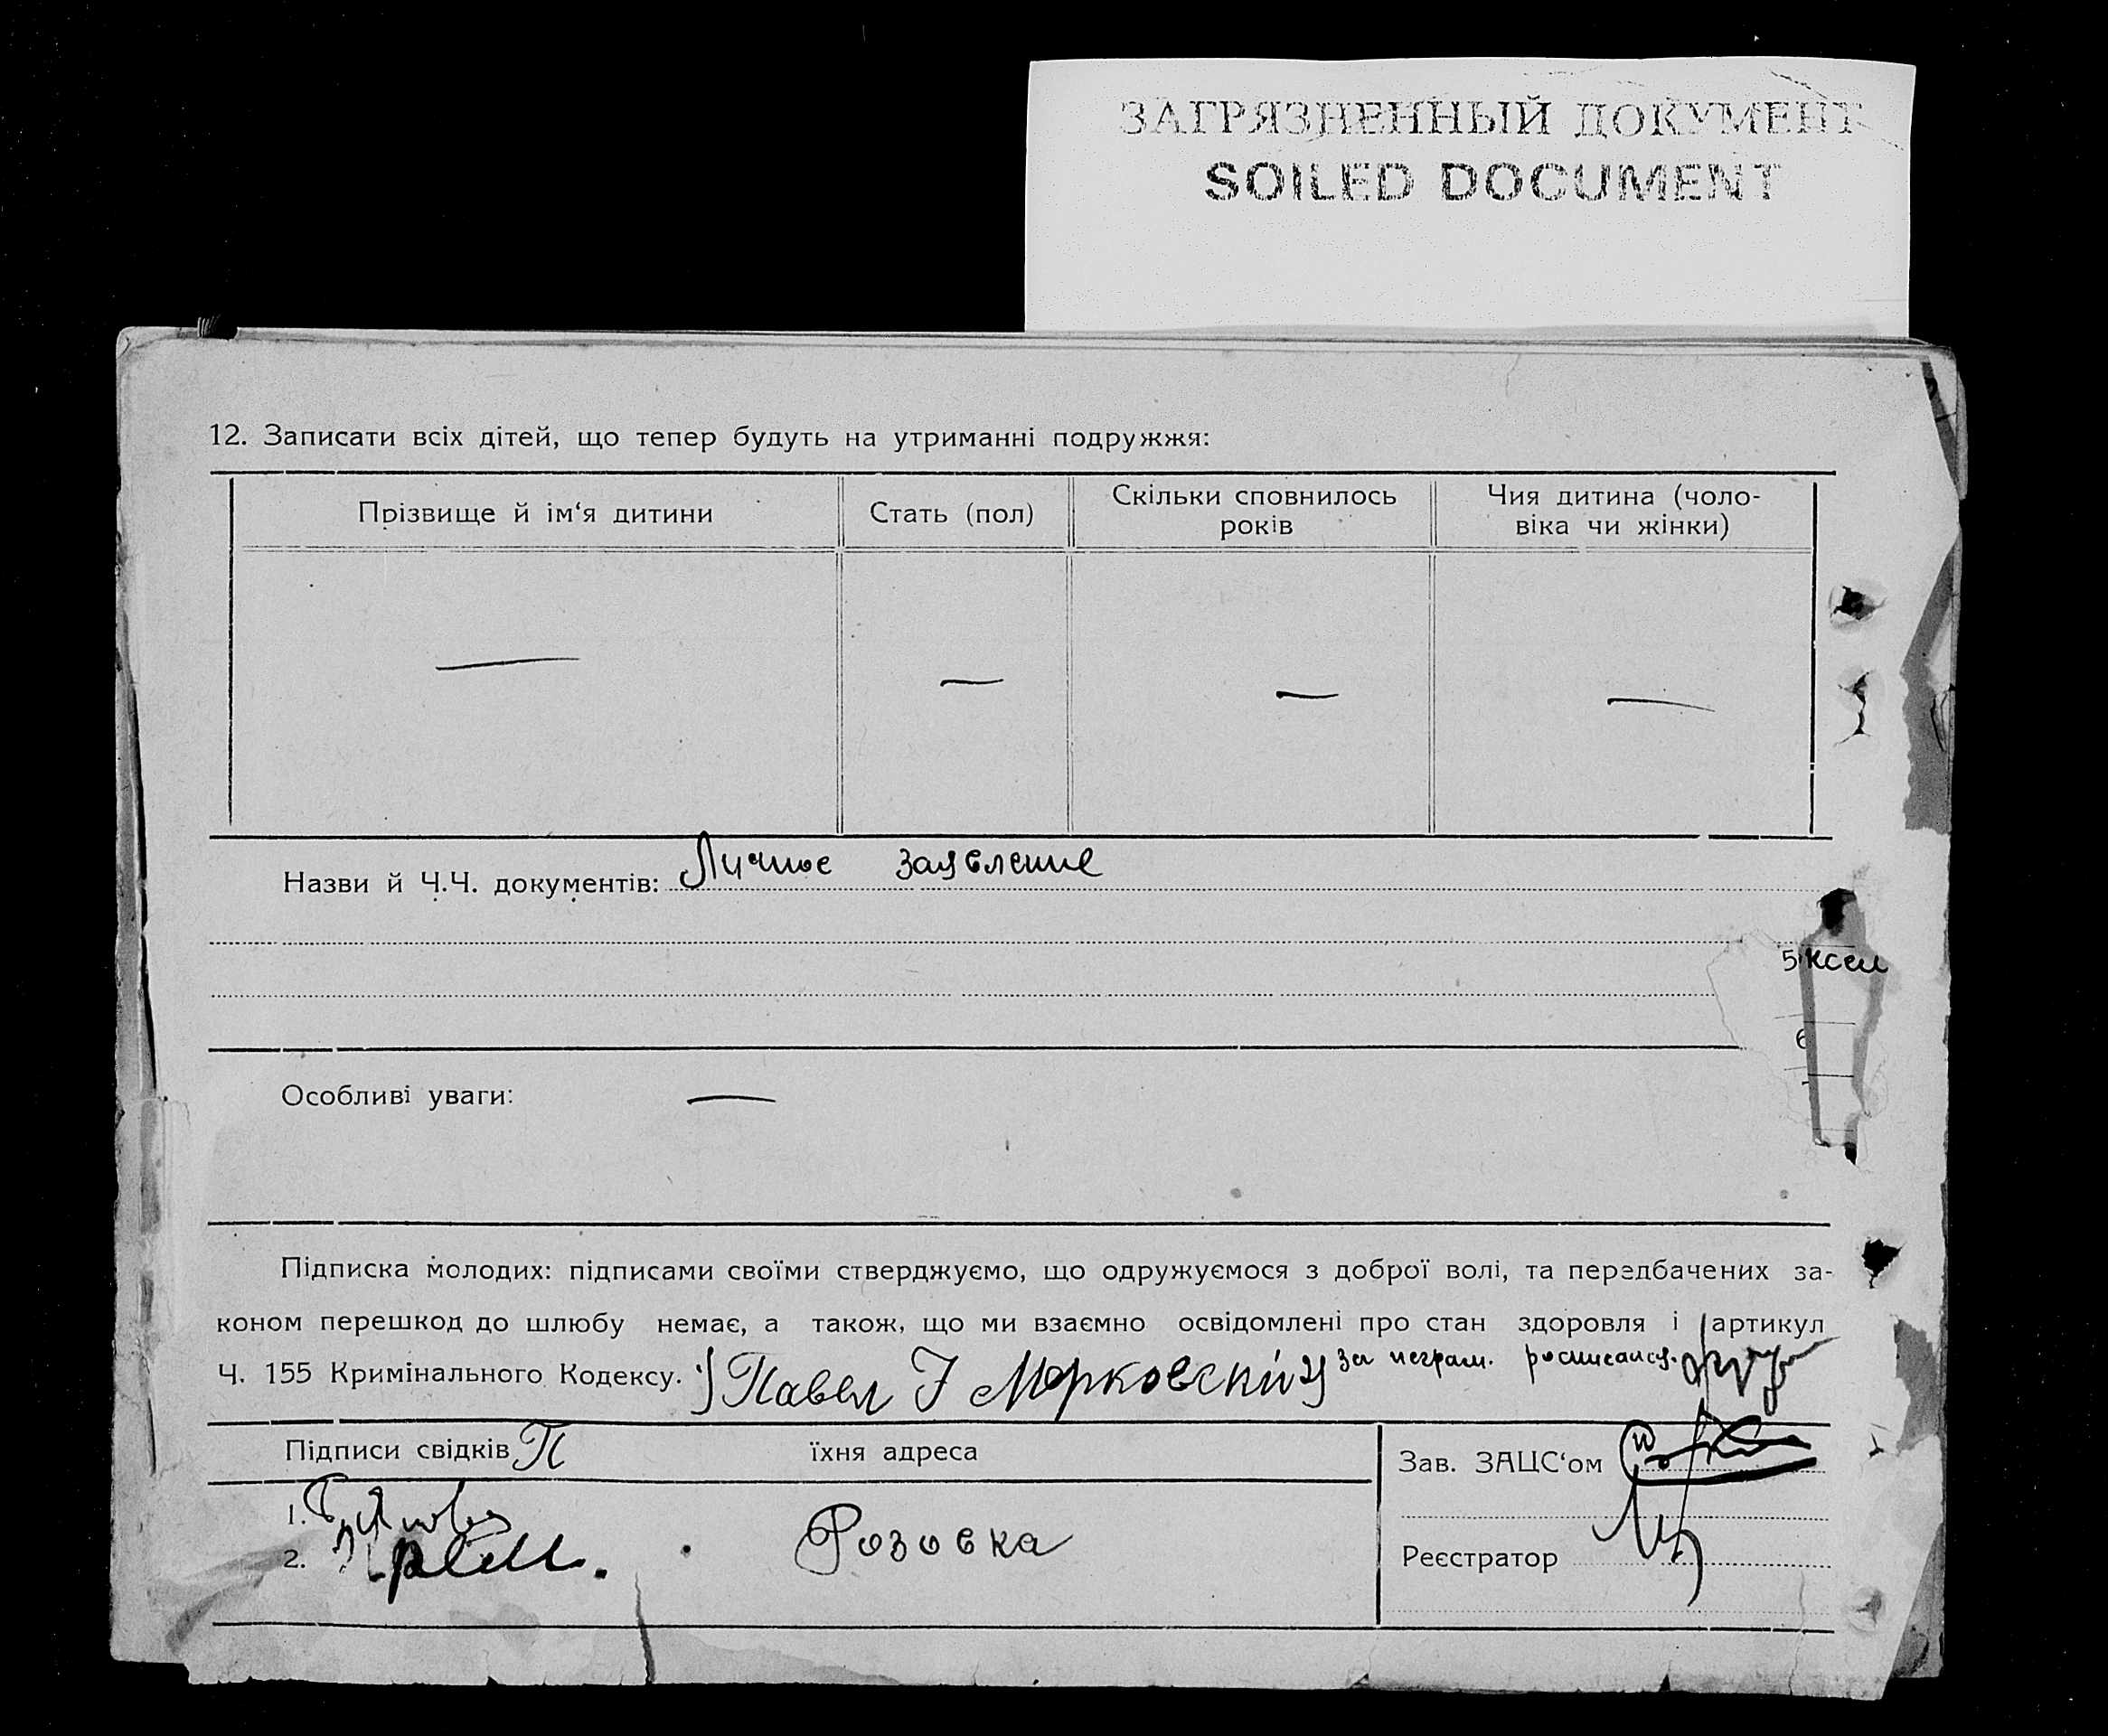 ЗАГРЯЗНЕННЫЙ ДОКУМЕНТ
SOILED DOCUMENT
12. Записати всіх дітей, що тепер будуть на утриманні подружжя:
Прізвище й ім‘я дитини
Стать (пол)
Скільки сповнилось
років
Чия дитина (чоло-
віка чи жінки)
—
—
—
—
Назви й Ч.Ч. документів: Личное заявление
5
6
Особливі уваги: —
Підписка молодих: підписами своїми стверджуємо, що одружуємося з доброї волі, та передбачених за-
коном перешкод до шлюбу немає, а також, що ми взаємно освідомлені про стан здоровля і артикул
Ч. 155 Кримінального Кодексу. Павел за неграм. росписался.
Підписи свідків П
їхня адреса
Зав. ЗАЦС‘ом
1.
2.
Розовка
Реєстратор